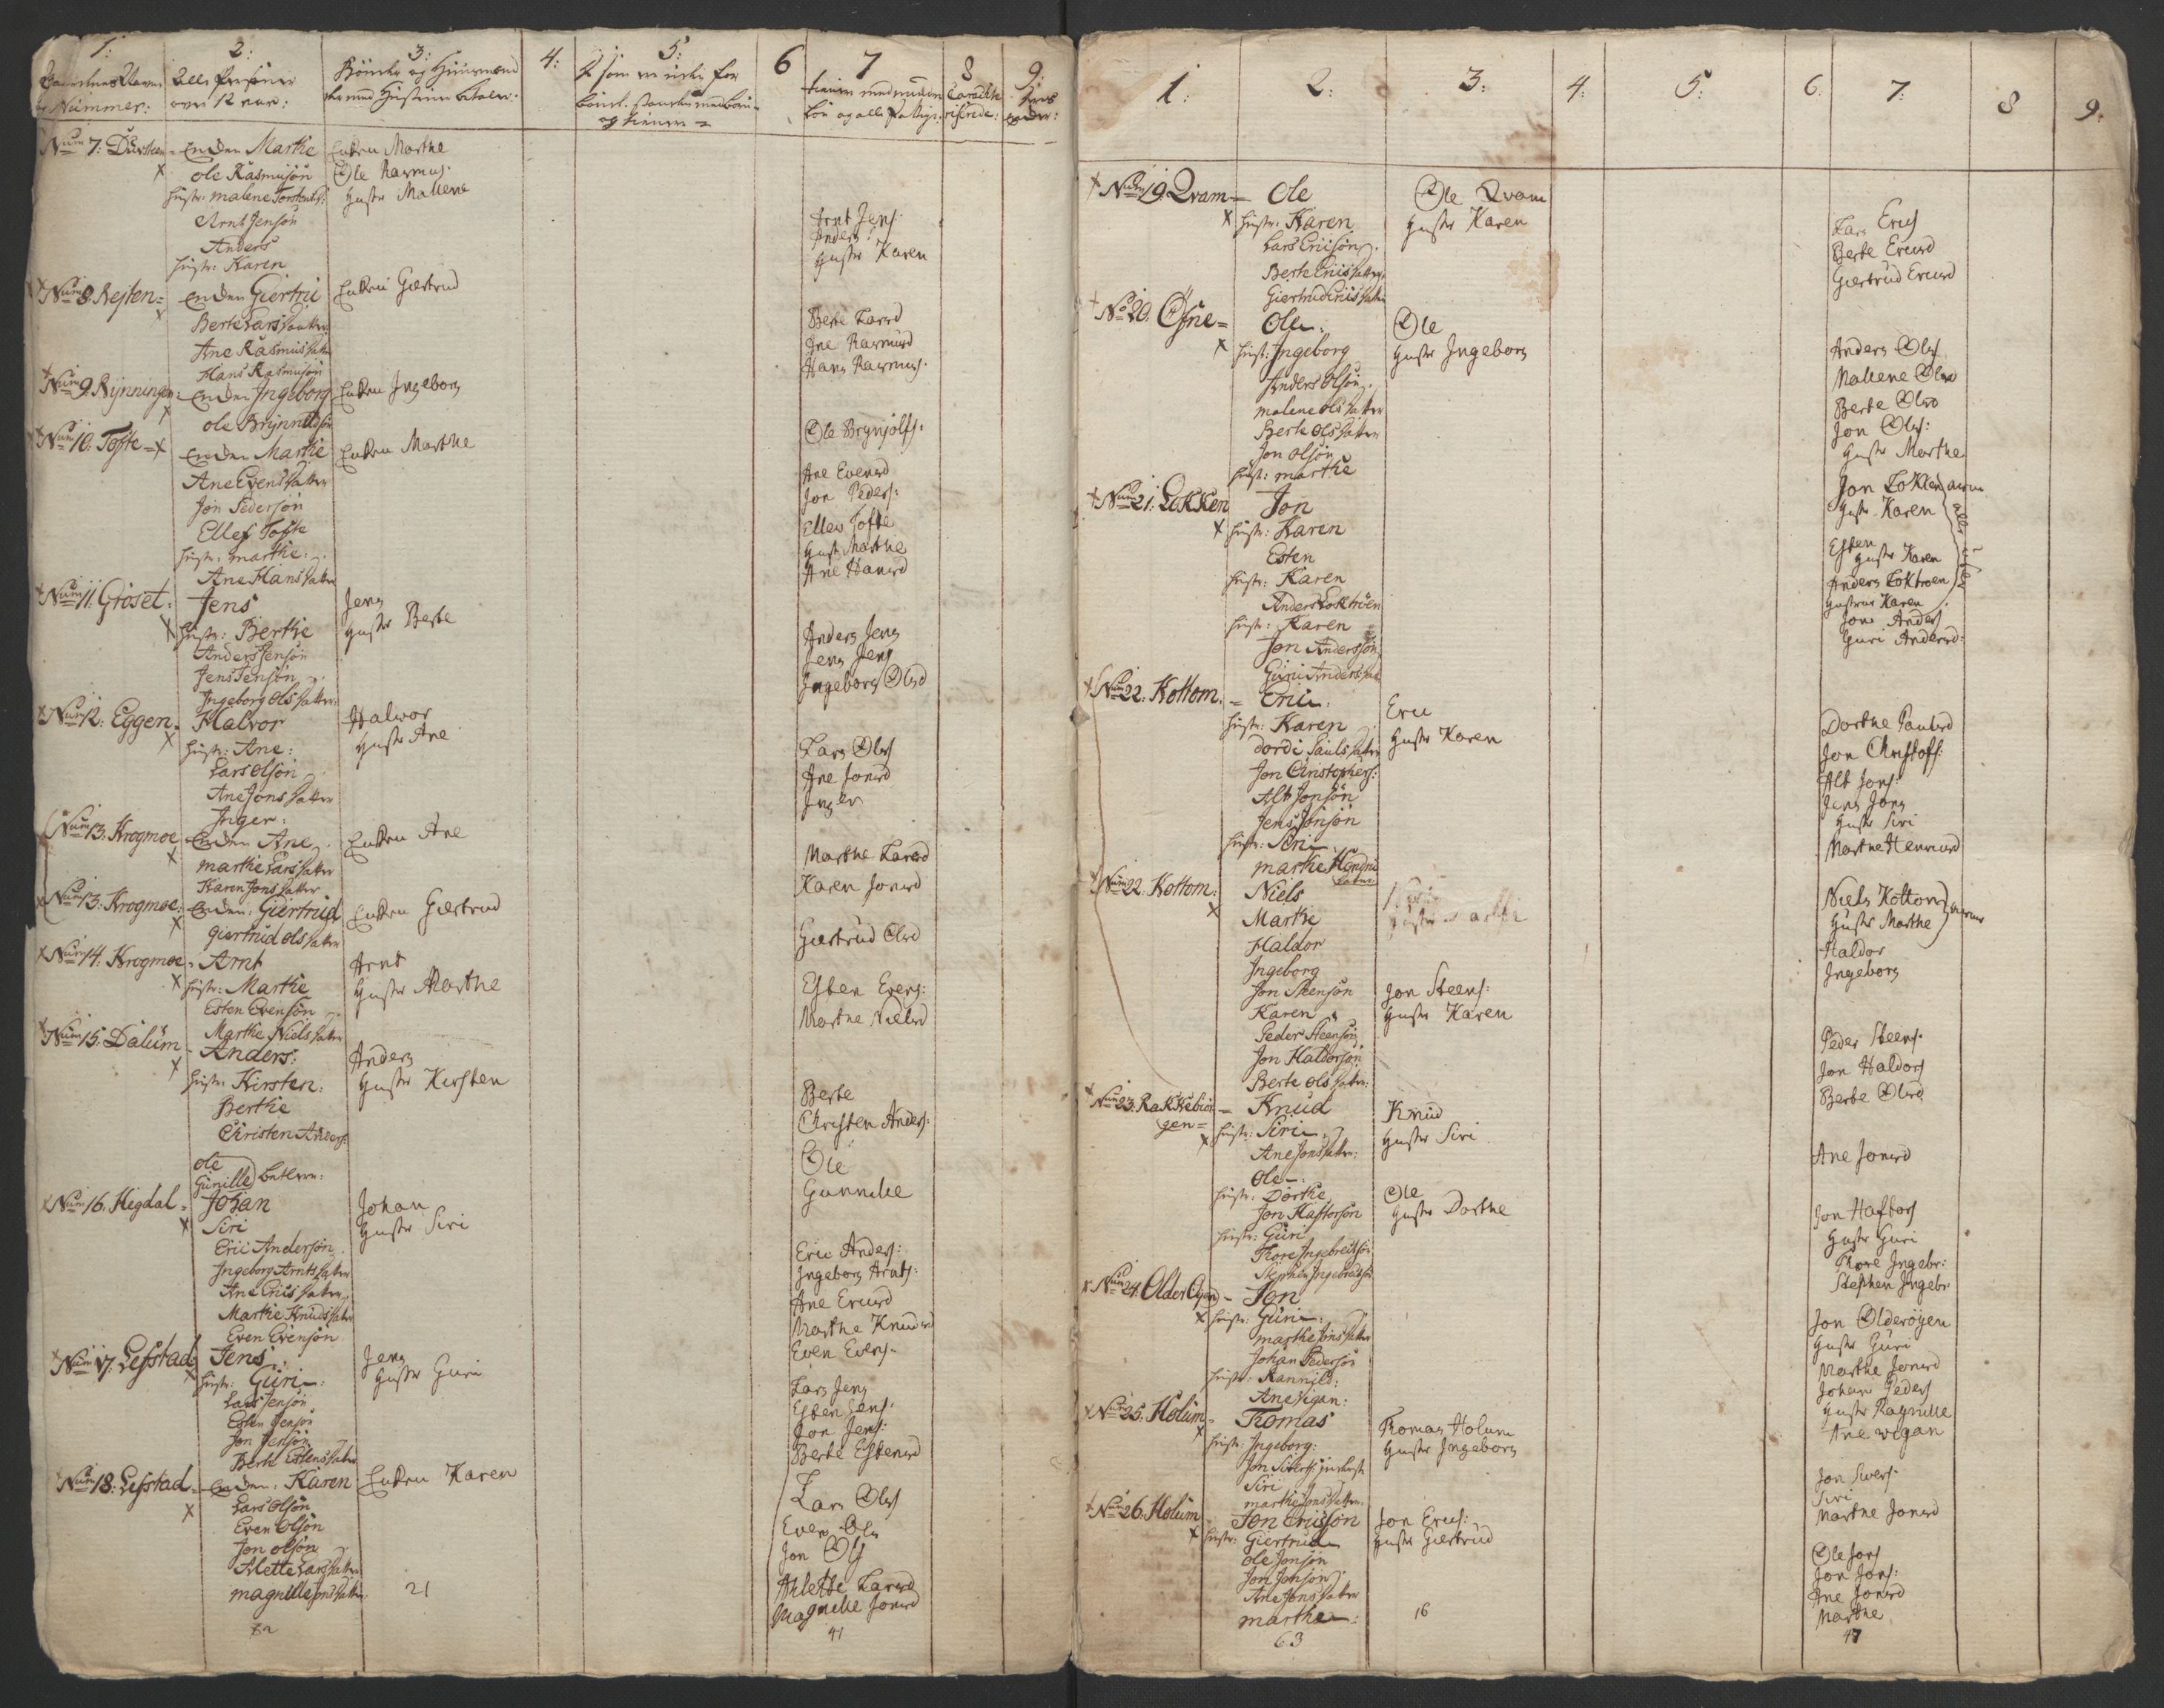 1: 2: 3: 4: 5: 6 7 8 9:
og Nummer: over 12 aar:
Num 7: = Enken Marthe Enken Marthe
Ole Rasmusøn Ole Rasmus:
hustr: malene Hustr Mallene
Arnt Jensøn Arnt Jens:
Anders Anders
hustr: Karen Hustr Karen
Num 8 Rejten = Enken Giertru Enken Giertrud
Berte Larsdatter Berte Larsd
Ane Rasmusdatter Ane Rasmusd
Hans Rasmusøn Hans Rasmus:
Num 9 Rynningen: Enken Ingeborg Enken Ingeborg
Ole Ole Brynjolfs:
Num 10: Tofte = Enken Marthe Enken Marthe
Ane Evensdatter Ane Evensd
Jon Pedersøn Jon Peders:
Ellef Tofte Ellev Tofte
hustr: marthe: Hustr Marthe
Ane Hansdatter Ane Hansd
Num 11: Groset: Jens Jens
hustr: Berthe Hustr Berte
Anders Jensøn Anders Jens
Jens Jensøn Jens Jens
Ingeborg Olsdatter Ingeborg Olsd
Num 12: Eggen = Halvor Halvor
hustr: Ane: Hustr Ane
Lars Olsøn Lars Ols
Ane Jonsdatter Ane Jonsd
Inger: Inger
Num 13: Krogmoe Enken Ane Enken Ane
marthe Larsdatter Marthe Larsd
Karen Jonsdatter Karen Jonsd
Num 13: Krogmoe: Enken: Giertrud Enken Giertrud
giertrud olsdatter Giertrud Olsd
Num 14: Krogmoe = Arnt Arnt
hustr: Marthe Hustr Marthe
Esten Evensøn Esten Evens:
Marthe Nielsdatter Marthe Nielsd
Num 15: Dalum Anders: Anders
hustr: Kirsten: Hustr Kirsten
Berthe Berte
Christen Anders: Christen Anders:
ole Ole
Gunille Gunnille
Num 16. Hegdal = Johan Johan
Siri Hustr Siri
Eric Andersøn Eric Anders:
Ingeborg Arntsdatter Ingeborg Arnts:
Ane Ericsdatter Ane Ericsd
Marthe Knudsdatter Marthe Knudsd
Even Evensøn Even Evens:
Num 17. Lefstad Jens Jens
hustr: Guri: Hustr Guri
Lars Jensøn Lars Jens
Esten Jensøn Esten Jens:
Jon Jensøn Jon Jens:
Berte Estensdatter Berte Estensd
Num 18: Lefstad = Enken: Karen Enken Karen
Lars Olsøn Lars Ols
Even Olsøn Even Ols
Jon Olsøn Jon Ols
Mette Larsdatter Larsd
magnille Jonsdatter Magnille Jonsd
82 21 41
1: 2: 3: 4: 5: 6: 7: 8 9:
Num 19. Qvam = Ole Ole Qvam
hustr: Karen Hustr Karen
Lars Ericsøn Lars Erics
Berte Ericsdatter Berte Ericsd
Giertrud Ericsdatter Giertrud Ericsd
No 20. Øsne = Ole: Ole
hustr: Ingeborg Hustr Ingeborg
Anders Olsøn Anders Ols
malene olsdatter Mallene Olsd
Berte olsdatter Berte Olsd
Jon Olsøn Jon Ols:
hustr: marthe Hustr Marthe
Num 21: Løkken Jon Jon Løkken
hustr: Karen Hustr Karen
Esten Esten
hustr: Karen Hustr Karen
Anders Løktroen Anders Løktroen
hustr: Karen Hustrue Karen
Jon Andersøn Jon Anders
Guri Andersdatter Guri Andersd:
Num 22: Kottom. = Eric: Eric
hustr: Karen Hustr Karen
dordi Paulsdatter Dorthe Paulsd
Jon Christophers: Jon Christofs:
Alt Jonsøn Alt Jons:
Jens Jonsøn Jens Jons
hustr: Siri Hustr Siri
marthe
Num 22. Kottom: Niels Niels Kottom
Marthe Hustr Marthe
Haldor Haldor
Ingeborg Ingeborg
Jon Steensøn Jon Steens:
Karen Hustr Karen
Peder Steensøn Peder Steens:
Jon Haldorsøn Jon Haldors
Berte olsdatter: Berte Olsd
Num 23: Rakkebiør gen = Knud Knud
hustr: Siri Hustr Siri
Ane Jonsdatter: Ane Jonsd
Ole Ole
hustr: Dorthe Hustr Dorthe
Jon Haftorsøn Jon Haftors
hustr: Guri Hustr Guri
Tore Ingebretsøn Tore Ingebr:
Stephen Ingebretsøn Stephen Ingebr:
Num 24. Jon Jon Olderøyen
hustr: Guri Hustr Guri
marthe Jonsdatter Marthe Jonsd
Johan Pedersøn Johan Peders
hustr: Rannild: Hustr Ragnille
Ane Vigan: Ane Wigan
Num 25. Holum = Tomas Tomas Holum
hustr: Ingeborg: Hustr Ingeborg
Jon Jon Sivers:
Siri Siri
marthe Jonsdatter: Marthe Jonsd
Num 26. Holum Jon Ericsøn Jon Erics:
hustr: Giertrud Hustr Giertrud
ole Jonsøn Ole Jons
Jon Jonsøn Jon Jons:
Ane Jonsdatter Ane Jonsd
marthe: Marthe
63 16 47